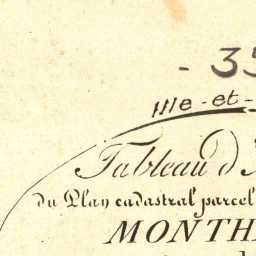 - 35
Ille-et-
Tableau d'
du Plan cadastral parcel
MONTH